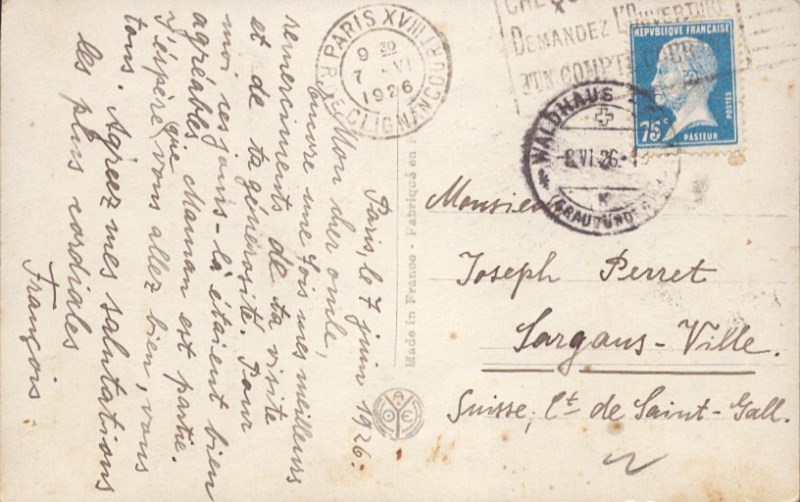 Paris, le 7 juin 1926.
Mon cher oncle,
Encore une fois mes meilleurs
remerciments de ta visite
et de ta générosité. Pour
moi ces jours-là étaient bien
agréables. Maman est partie.
J'éspère que vous allez bien, vous
tous. Agréez mes salutations
les plus cordiales
François.
PARIS XVIII
R. DE CLIGNANCOURT
9 30
7 - VI
1926
DEMANDEZ L'OUVERTURE
D'UN COMPTE
REPUBLIQUE FRANÇAISE
75c
POSTES
PASTEUR
WALDHAUS
8.VI.26.
(GRAUBÜND
Made in France - Fabriqué en
Monsieur
Joseph Perret
Sargans-Ville.
Suisse, Ct de Saint-Gall.